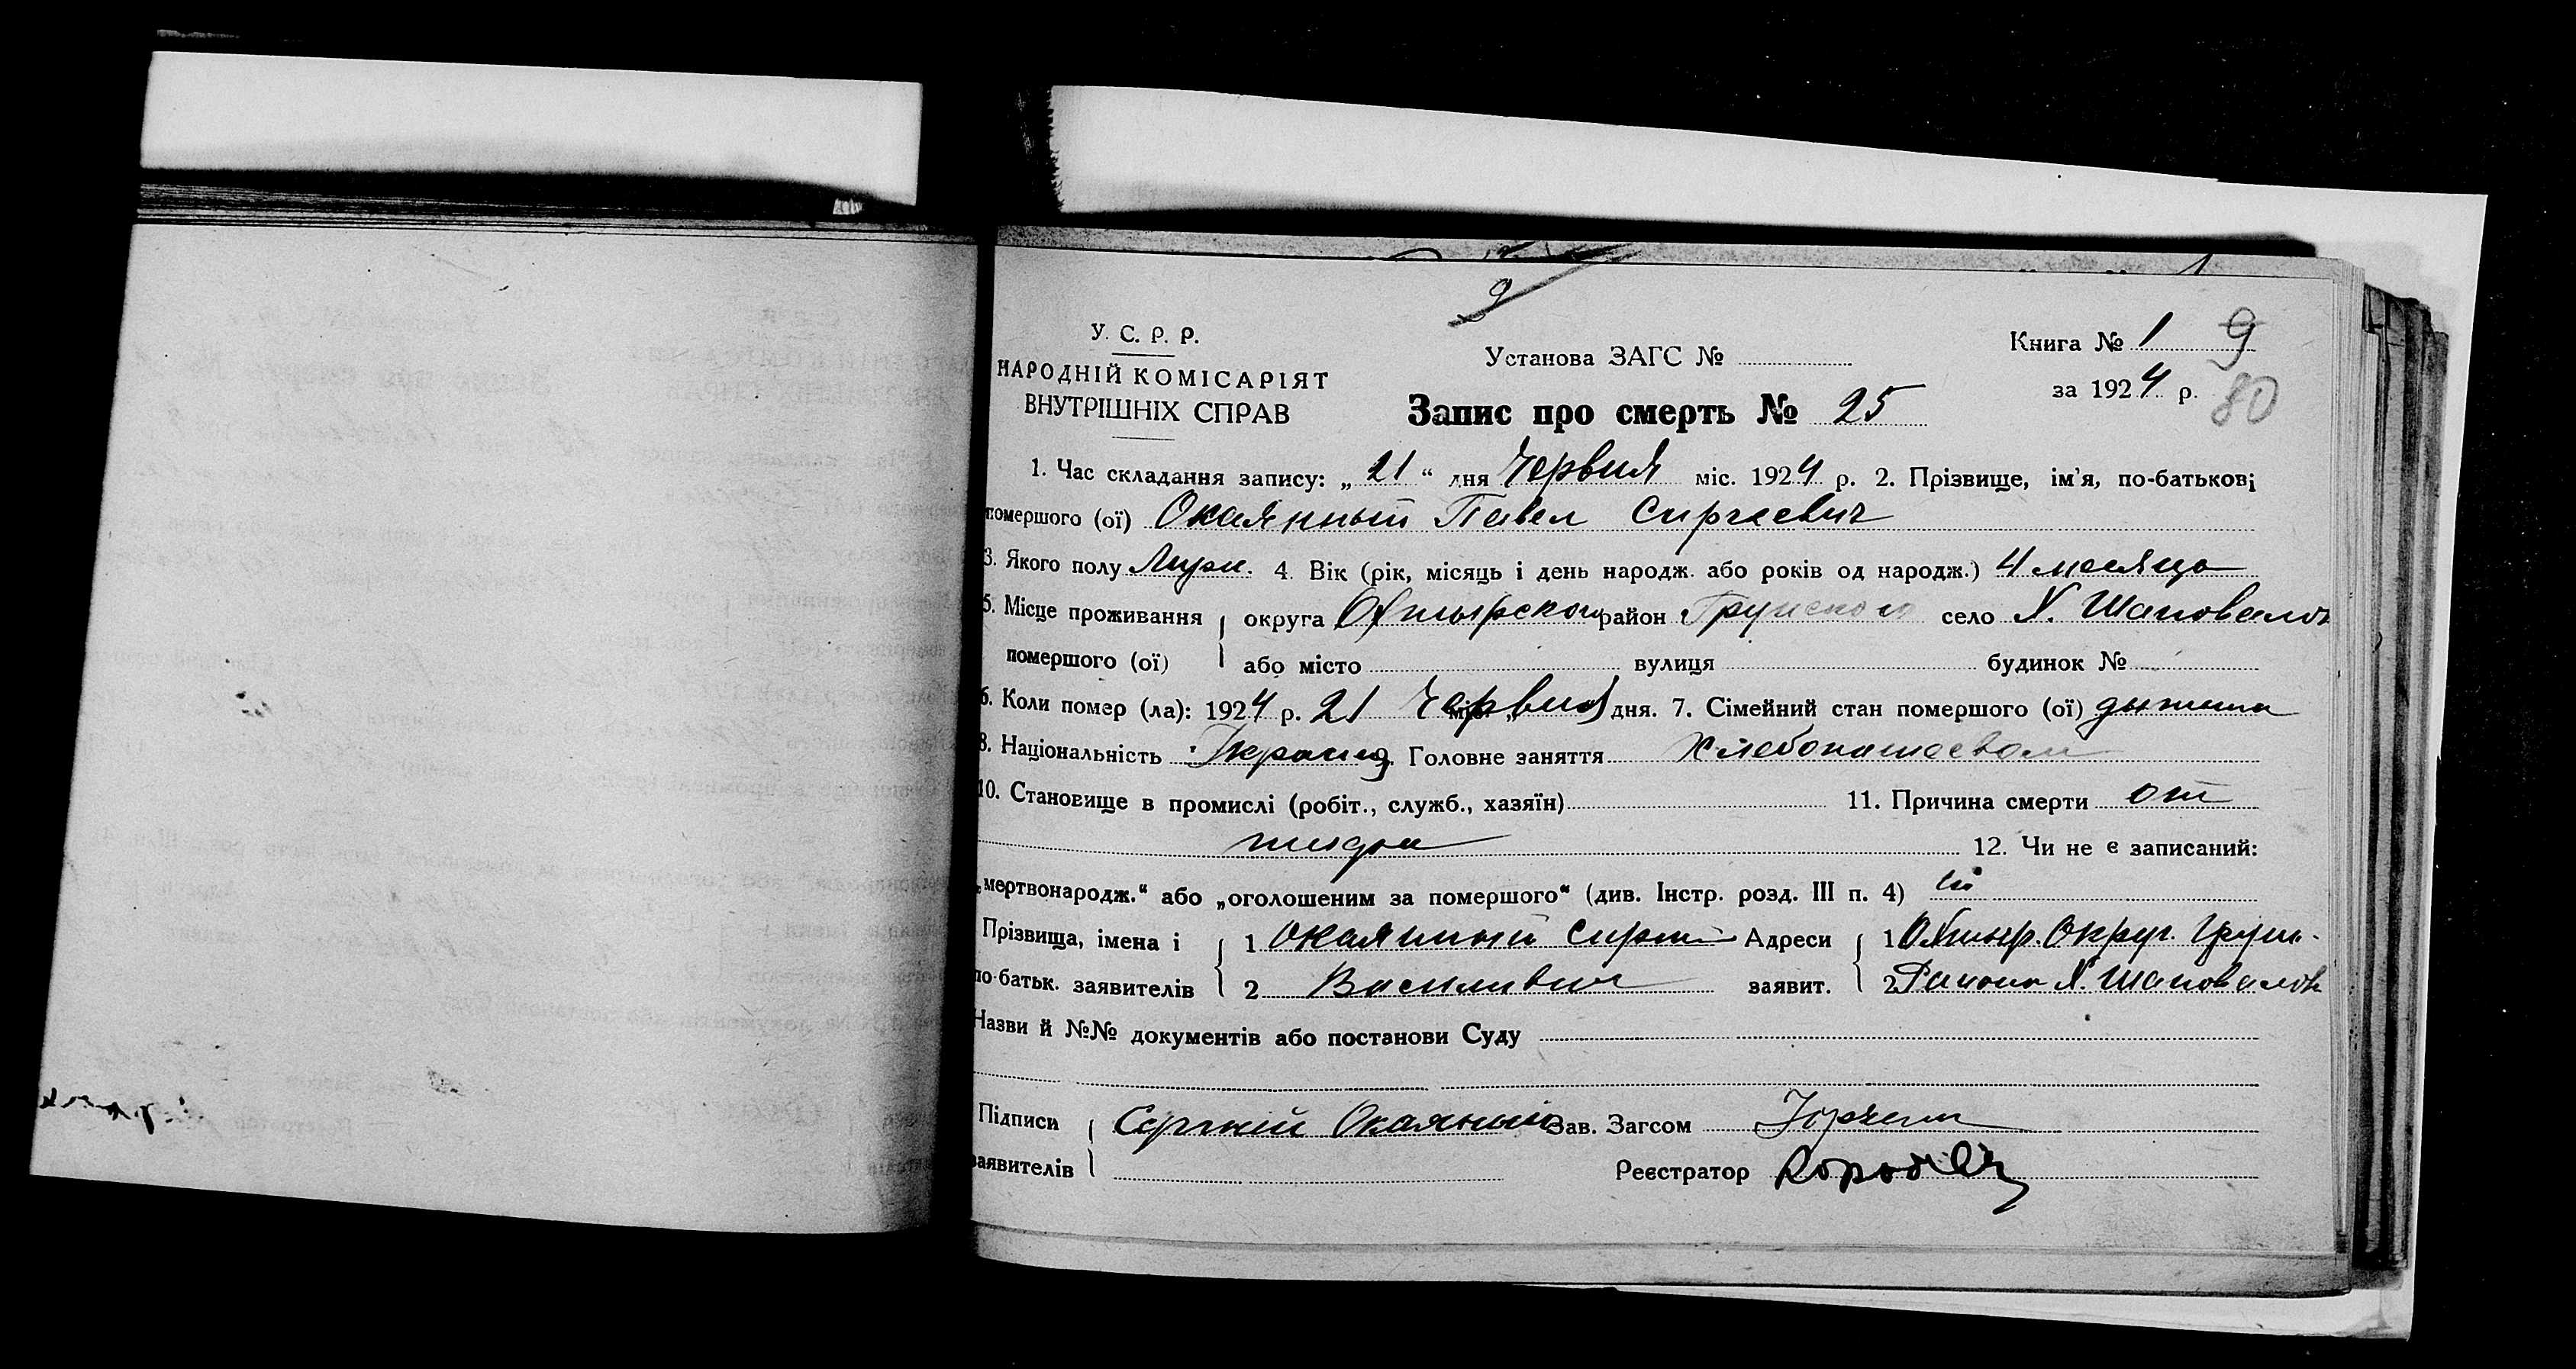 9
У. С. Р. Р.
НАРОДНІЙ КОМІСАРІЯТ
ВНУТРІШНІХ СПРАВ
Установа ЗАГС №
Книга № 1 9
за 1924 р. 80
Запис про смерть № 25
1. Час складання запису: „ 21 “ дня Червня міс. 1924 р. 2. Прізвище, ім'я, по-батькові
помершого (ої) Окаянный Павел Сиргеевич
3. Якого полу Муж. 4. Вік (рік, місяць і день народж. або років од народж.) 4 месяца
5. Місце проживання округа Охтырского район Грунского село Х. Шаповалов
помершого (ої) або місто вулиця будинок №
6. Коли помер (ла): 1924 р. 21 Червня міс. „ дня. 7. Сімейний стан помершого (ої) дытына
8. Національність Украин. 9. Головне заняття Хлебопашеством
10. Становище в промислі (робіт., служб., хазяїн) 11. Причина смерти от
12. Чи не є записаний:
„мертвонародж.“ або „оголошеним за помершого“ (див. Інстр. розд. III п. 4) ні
Прізвища, імена і 1 Окаянный Сиргий Адреси 1 Охтыр. Округ. Грун.
по-батьк. заявителів 2 Василивич заявит. 2 Района Х. Шаповалов
Назви й №№ документів або постанови Суду
Підписи Сергией Окаяный Зав. Загсом
заявителів Реєстратор